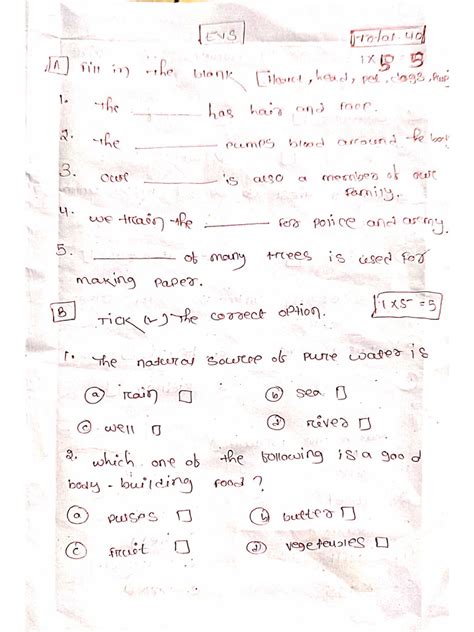 EVS
Total: 40
1 X 5 = 5
A Fill in the blank [Heart, head, pet, dogs, Pulp
1. The ________ has hair and face.
2. The ________ pumps blood around the bo
3. our ________ is also a member of our
family.
4. we train the ________ for police and army.
5. ________ of many trees is used for
making paper.
B Tick (✓) The correct option. 1 X 5 = 5
1. The natural source of pure water is
(a) rain □ (b) sea □
(c) well □ (d) river □
2. which one of the following is a good
body-building food?
(a) pulses □ (b) butter □
(c) fruit □ (d) vegetables □